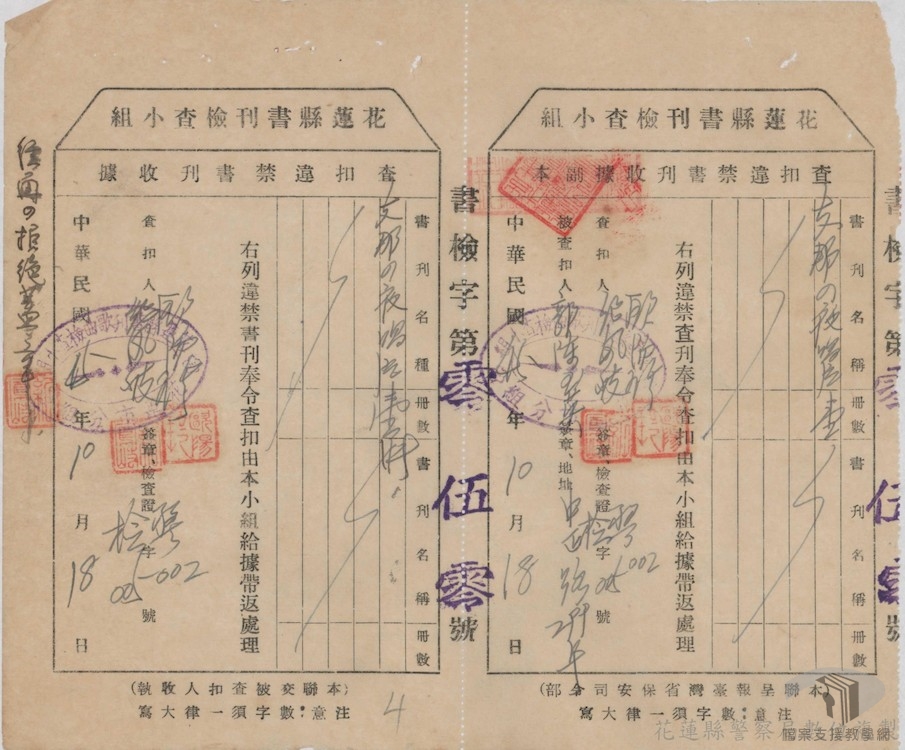 花蓮縣書刊檢查小組
查扣違禁書刊收據副本
書刊名稱
冊數
書刊名稱
冊數
支那の夜唱片壹
右列違禁查刊奉令查扣由本小組給據帶返處理
查扣人
簽章、檢查證 字 號
檢 002
被查扣人
簽章、地址
中華民國 年 10 月 18 日
(本聯呈報臺灣省保安司令部)
注意:數字須一律大寫
書檢字第零伍零號
花蓮縣書刊檢查小組
查扣違禁書刊收據
書刊名種
冊數
書刊名稱
冊數
支那の夜唱片
右列違禁書刊奉令查扣由本小組給據帶返處理
查扣人
簽章、檢查證 字 號
檢 002
中華民國 年 10 月 18 日
拒絕蓋章
(本聯交被查扣人收執)
注意:數字須一律大寫
4
書檢字第零伍零號
花蓮縣警察局數位複製
檔案支援教學網